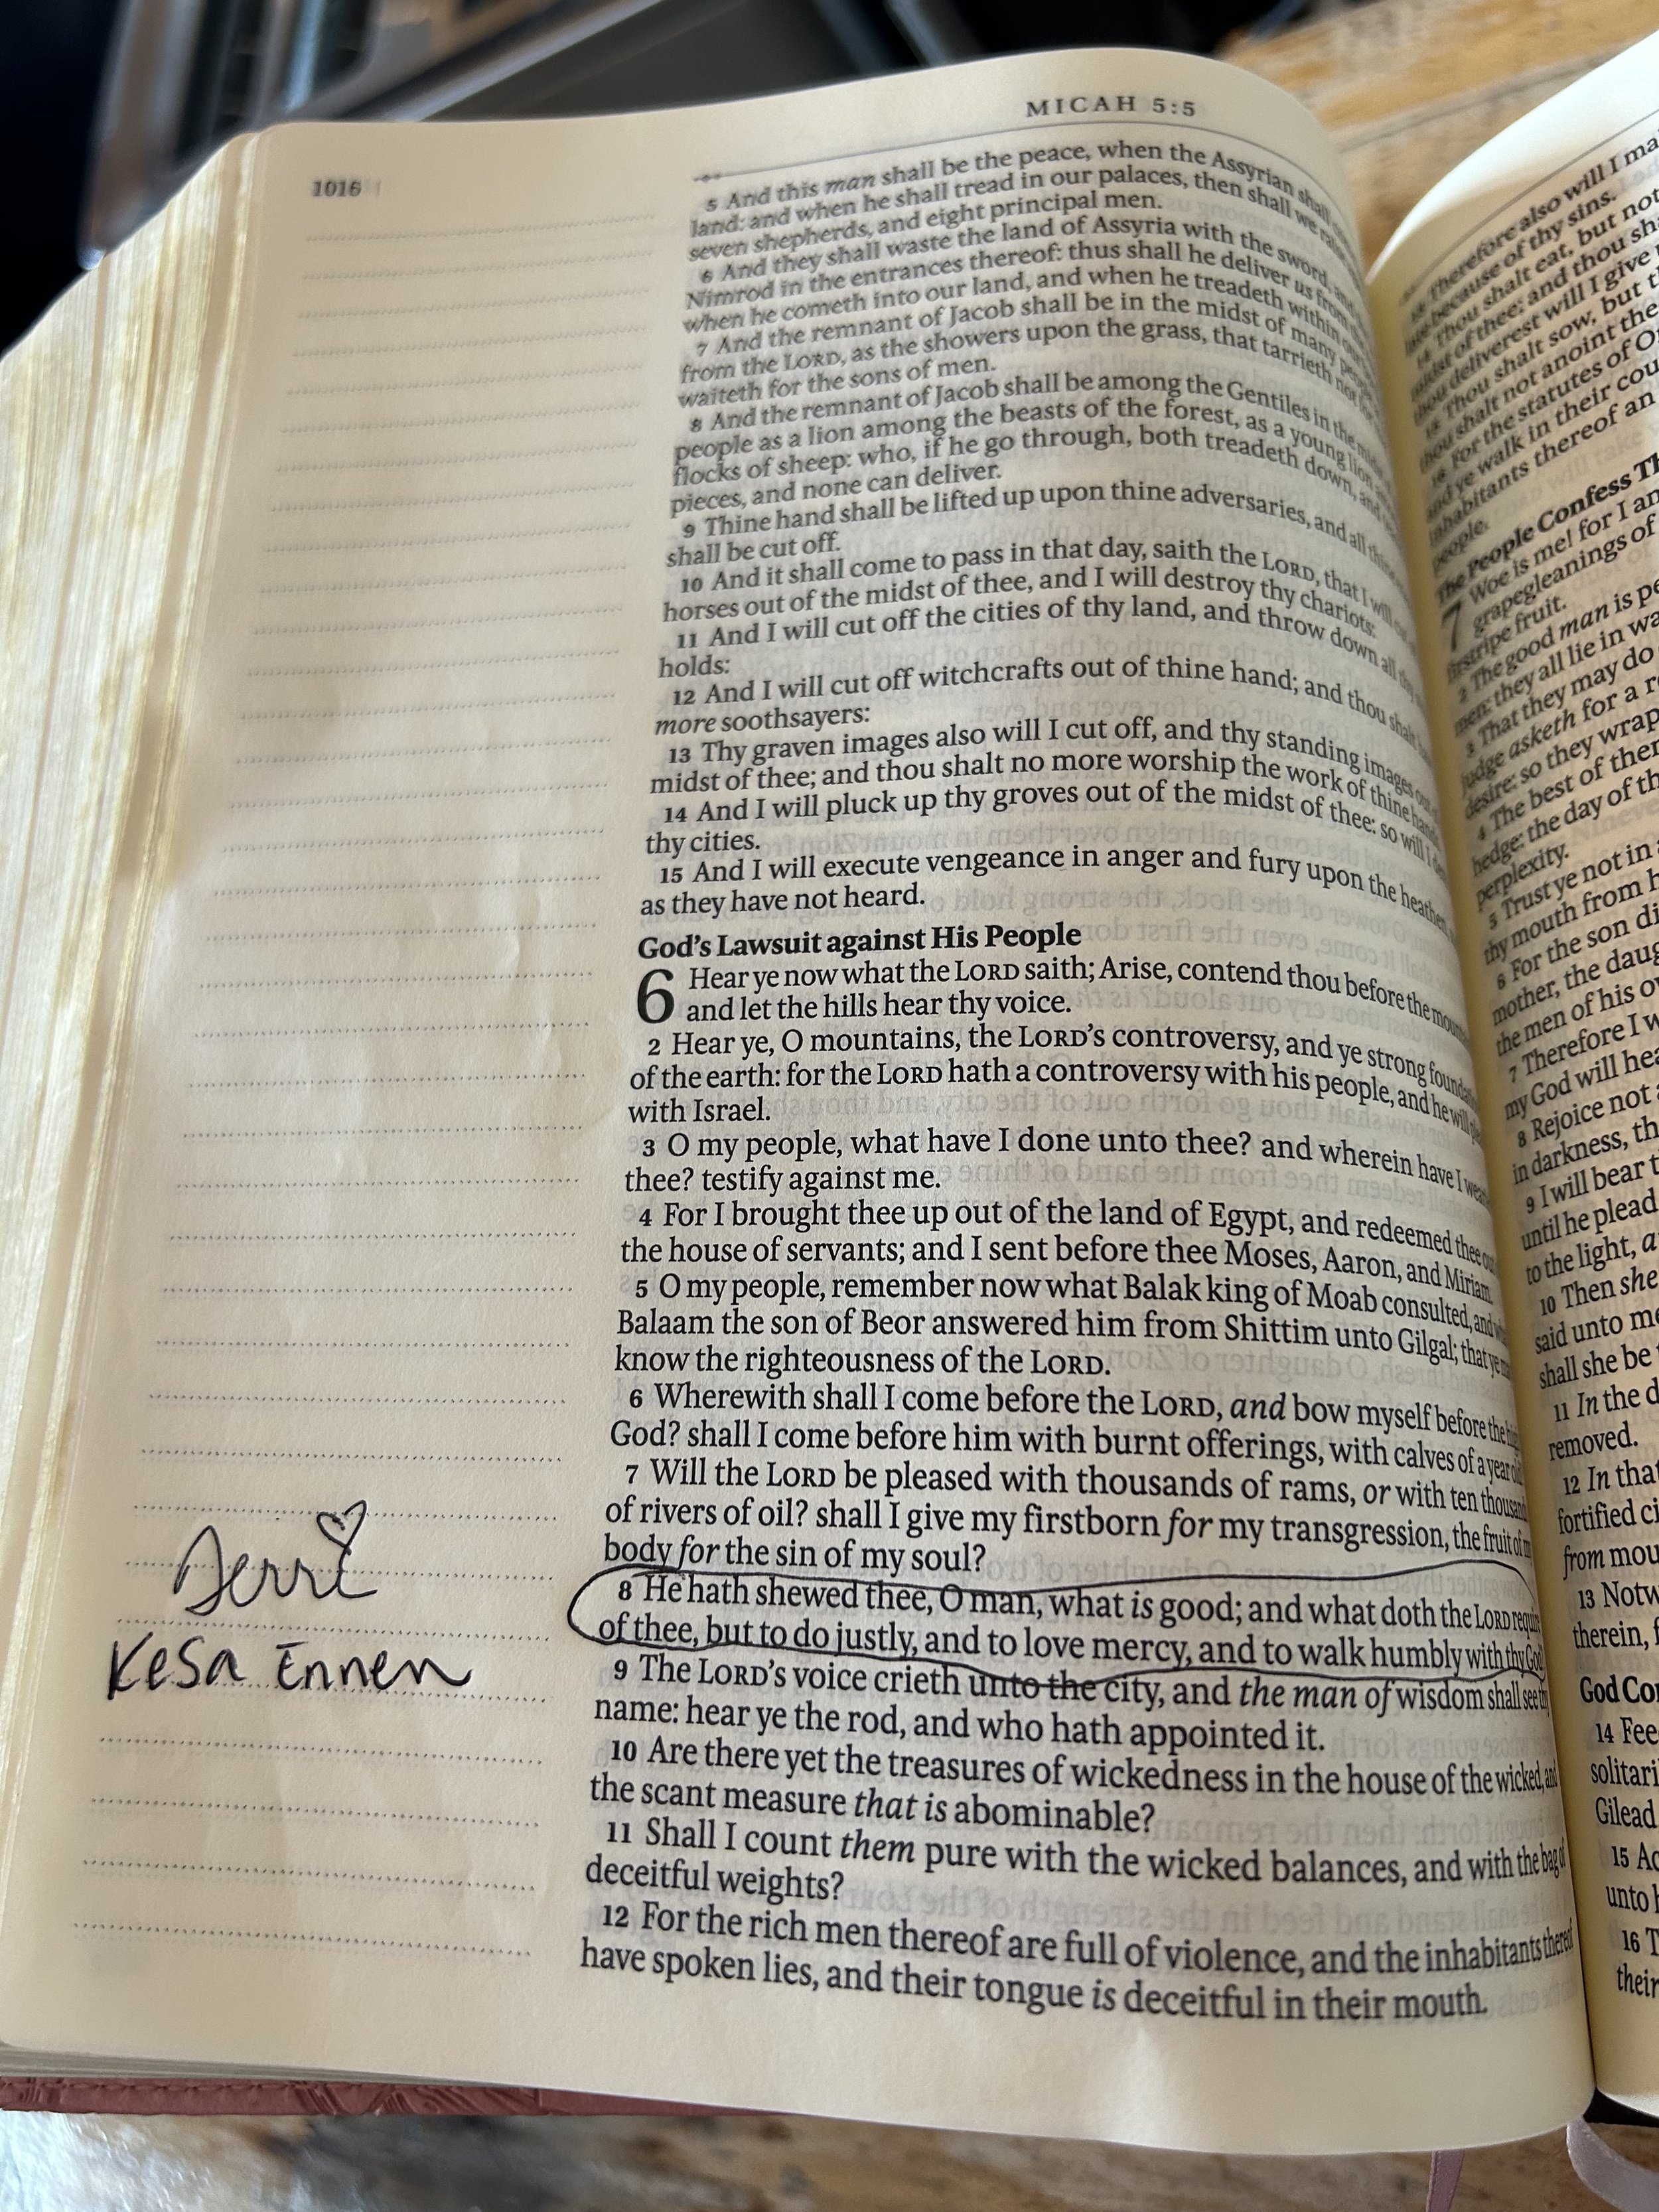 MICAH 5:5
1016
5 And this man shall be the peace, when the Assyrian shall
land: and when he shall tread in our palaces, then shall we
seven shepherds, and eight principal men.
6 And they shall waste the land of Assyria with the sword, and
Nimrod in the entrances thereof: thus shall he deliver us from
when he cometh into our land, and when he treadeth within our
7 And the remnant of Jacob shall be in the midst of many
from the LORD, as the showers upon the grass, that tarrieth not
waiteth for the sons of men.
8 And the remnant of Jacob shall be among the Gentiles in the
people as a lion among the beasts of the forest, as a young lion
flocks of sheep: who, if he go through, both treadeth down, and
pieces, and none can deliver.
9 Thine hand shall be lifted up upon thine adversaries, and all thine
shall be cut off.
10 And it shall come to pass in that day, saith the LORD, that I will
horses out of the midst of thee, and I will destroy thy chariots:
11 And I will cut off the cities of thy land, and throw down all thy
holds:
12 And I will cut off witchcrafts out of thine hand; and thou shalt
more soothsayers:
13 Thy graven images also will I cut off, and thy standing images out
midst of thee; and thou shalt no more worship the work of thine hands
14 And I will pluck up thy groves out of the midst of thee: so will I
thy cities.
15 And I will execute vengeance in anger and fury upon the heathen
as they have not heard.
God's Lawsuit against His People
6 Hear ye now what the LORD saith; Arise, contend thou before the
and let the hills hear thy voice.
2 Hear ye, O mountains, the LORD'S controversy, and ye strong
of the earth: for the LORD hath a controversy with his people, and he will
with Israel.
3 O my people, what have I done unto thee? and wherein have I
thee? testify against me.
4 For I brought thee up out of the land of Egypt, and redeemed thee out
the house of servants; and I sent before thee Moses, Aaron, and Miriam.
5 O my people, remember now what Balak king of Moab consulted, and
Balaam the son of Beor answered him from Shittim unto Gilgal; that ye
know the righteousness of the LORD.
6 Wherewith shall I come before the LORD, and bow myself before the
God? shall I come before him with burnt offerings, with calves of a year old
7 Will the LORD be pleased with thousands of rams, or with ten
of rivers of oil? shall I give my firstborn for my transgression, the fruit of
body for the sin of my soul?
8 He hath shewed thee, O man, what is good; and what doth the LORD
of thee, but to do justly, and to love mercy, and to walk humbly with thy God
9 The LORD's voice crieth unto the city, and the man of wisdom shall see
name: hear ye the rod, and who hath appointed it.
10 Are there yet the treasures of wickedness in the house of the wicked, and
the scant measure that is abominable?
11 Shall I count them pure with the wicked balances, and with the bag of
deceitful weights?
12 For the rich men thereof are full of violence, and the inhabitants thereof
have spoken lies, and their tongue is deceitful in their mouth.
Jerri
Kesa Ennen
Therefore also will I
because of thy sins.
Thou shalt eat, but not
midst of thee: and thou
deliverest will I give
Thou shalt sow, but
shalt not anoint
16 For the statutes of
and ye walk in their
inhabitants thereof
people.
The People Confess
7 Woe is me! for I
grapegleanings of
firstripe fruit.
2 The good man is
men: they all lie in
3 That they may do
judge asketh for a
desire: so they wrap
4 The best of
hedge: the day of
perplexity.
5 Trust ye not in
thy mouth from
6 For the son
mother, the
the men of his
7 Therefore I
my God will
8 Rejoice not
in darkness,
9 I will bear
until he plead
to the light,
10 Then she
said unto
shall she be
11 In the
removed.
12 In that
fortified
from
13
therein,
God
14
Gilead
15
unto
16
their